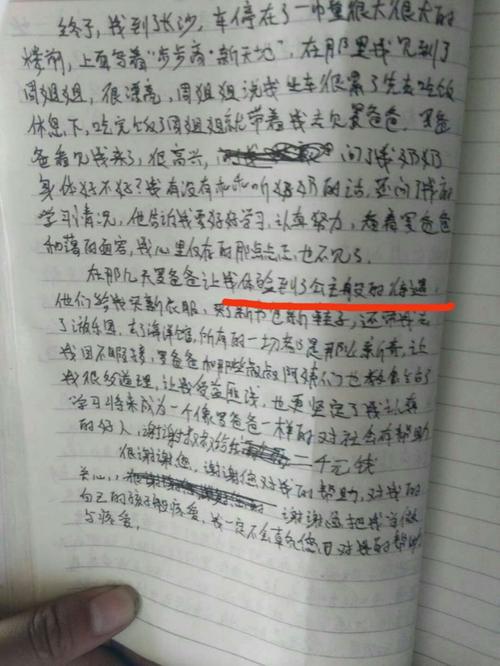 终于,我到了长沙,车停在了一幢很大很大的
楼前,上面写着“步步高·新天地”,在那里我见到了
周姐姐,很漂亮,周姐姐说我坐车很累了先去吃饭
休息下,吃完饭了周姐姐就带着我去见罗爸爸,罗爸
爸看见我来了,很高兴,问了我奶奶
身体好不好?我有没有乖乖听奶奶的话,还问了我的
学习情况,他告诉我要好好学习,认真努力,看着罗爸爸
和蔼的面容,我心里仅存的那点忐忑,也不见了。
在那几天罗爸爸让我体验到了公主般的待遇,
他们给我买新衣服,买了新书包新鞋子,还带我去
了游乐园,去了海洋馆,所有的一切都是那么新奇,让
我目不暇接,罗爸爸和那些叔叔阿姨们也教会了
我很多道理,让我受益匪浅,也更坚定了我认真
学习将来成为一个像罗爸爸一样的对社会有帮助
的好人,谢谢叔叔给的二千元钱
很谢谢您,谢谢您对我的帮助,对我的
关心,谢谢您把我当做
自己的孩子般疼爱,我一定不会辜负您对我的帮助
与疼爱。